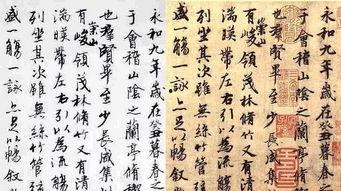 永和九年歲在癸丑暮春之
于會稽山陰之蘭亭脩
也群賢畢至少長咸集
有崇山峻領茂林脩竹又有清
湍暎帶左右引以為流
列坐其次雖無絲竹管
盛一觴一詠亦足以暢敘
永和九年歲在癸丑暮春之
于會稽山陰之蘭亭脩
也群賢畢至少長咸集
有崇山峻領茂林脩竹又有清
湍暎帶左右引以為流
列坐其次雖無絲竹管
盛一觴一詠亦足以暢敘